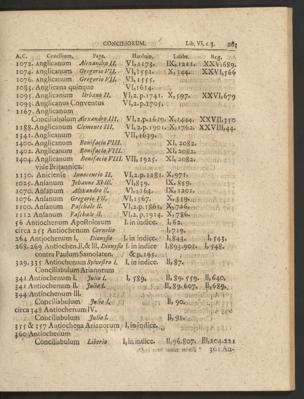 CONCILIORUM. Lib. VI. c. 3. 263
A.C. Concilium, Papa, Harduin. Labbe. Reg.
1072. Anglicanum Alexandro II. VI,1.1175. IX,1211. XXV.689.
1074. Anglicanum Gregorio VII. VI,1521. X,344. XXVI,566
1076. Anglicanum Gregorio VII. VI,1555.
1085. Anglicana quinque VI,1614.
1094. Anglicanum Urbano II. VI,2.p.1741. X,597. XXVI,679
1093. Anglicanus Conventus VI,2.p.1705.
1167. Anglicanum
Conciliabulum Alexandro III. VI,2.p.1629. X,1444. XXVII,350
1188. Anglicanum Clemente III. VI,2.p.1901. X,1762. XXVIII,44.
1341. Anglicanum VII,1639.
1400. Anglicanum Bonifacio VIII. XI, 2082.
1402. Anglicanum Bonifacio VIII. XI, 2082.
1404. Anglicanum Bonifacio VIII. VII, 1925. XI, 2082.
vide Britannica.
1130. Aniciense Innocentio II. VI,2.p.1281. X,971.
1025. Ansanum Johanne XVIII. VI,839. IX,859.
1070. Ansanum Alexandro II. VI,1164. IX,1201.
1076. Ansanum Gregorio VII. VI,1567. X,359.
1100. Ansanum Paschale II. VI,2.p.1861. X,726.
1112 Ansanum Paschale II. VI,2.p.1914. X,786.
56 Antiochenum Apostolorum I. in indice. I,62.
circa 253 Antiochenum Cornelio I,719.
264 Antiochenum I, Dionysio I. in indice I,845. I,543.
268.269 Antiochen.II,& III, Dionysio I. in indice I,893.901. I,548.
contra Paulum Samosaten. & p.195.
329.335 Antiochenum Sylvestro I. I, in indice. II,87.
Conciliabulum Arianorum
341 Antiochenum I. Julio I. I,589. II,89.559. II,640.
341 Antiochenum II. Julio I. II,89.607. II,689.
344 Antiochenum III.
Conciliabulum Julio I. II, 90.
circa 348 Antiochenum IV.
Conciliabulum Julio I. II,91.
355 & 357 Antiochena Arianorum I, in indice.
360 Antiocheium
Conciliabulum Liberio I, in indice. II,96.807. III,204.221
361 An-